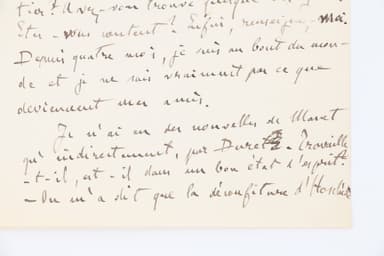 tier? Avez-vous trouvé quelque
Etes-vous content? Enfin, renseignez-moi.
Depuis quatre mois, je suis au bout du mon-
de et je ne sais vraiment pas ce que
deviennent mes amis.
Je n'ai eu des nouvelles de Manet
qu'indirectement, par Duret. Travaille
-t-il, est-il dans un bon état d'esprit?
- On m'a dit que la déconfiture d'Hoschedé